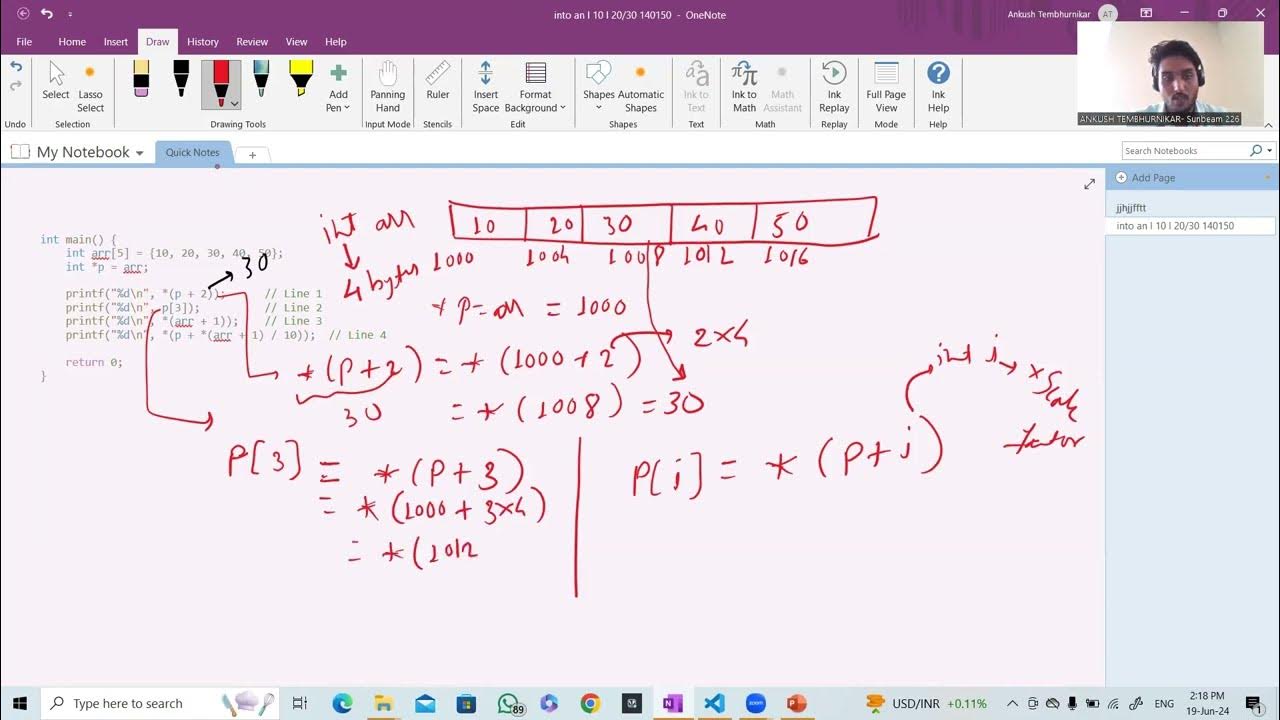 into an l 10 l 20/30 140150 - OneNote
Ankush Tembhurnikar AT
File Home Insert Draw History Review View Help
Undo
Select
Lasso Select
Selection
Add Pen
Drawing Tools
Panning Hand
Input Mode
Ruler
Stencils
Insert Space
Format Background
Edit
Shapes
Automatic Shapes
Shapes
Ink to Text
Ink to Math
Math Assistant
Math
Ink Replay
Replay
Full Page View
Mode
Ink Help
Help
ANKUSH TEMBHURNIKAR- Sunbeam 226
My Notebook Quick Notes
Search Notebooks
Add Page
jjhjjfftt
into an l 10 l 20/30 140150
int arr 10 20 30 40 50
4 bytes 1000 1004 1008 1012 1016
int main() {
int arr[5] = {10, 20, 30, 40, 50};
int *p = arr;
30
printf("%d\n", *(p + 2)); // Line 1
printf("%d\n", p[3]); // Line 2
printf("%d\n", *(arr + 1)); // Line 3
printf("%d\n", *(p + *(arr + 1) / 10)); // Line 4
return 0;
}
P
* p = arr = 1000
*(P+2) = *(1000+2) 2×4
30 = *(1008) = 30
P[3] = *(P+3)
= *(1000 + 3×4)
= *(1012
P[i] = *(P+i)
int i × Scale
factor
Type here to search
89
USD/INR +0.11%
ENG
2:18 PM
19-Jun-24
1